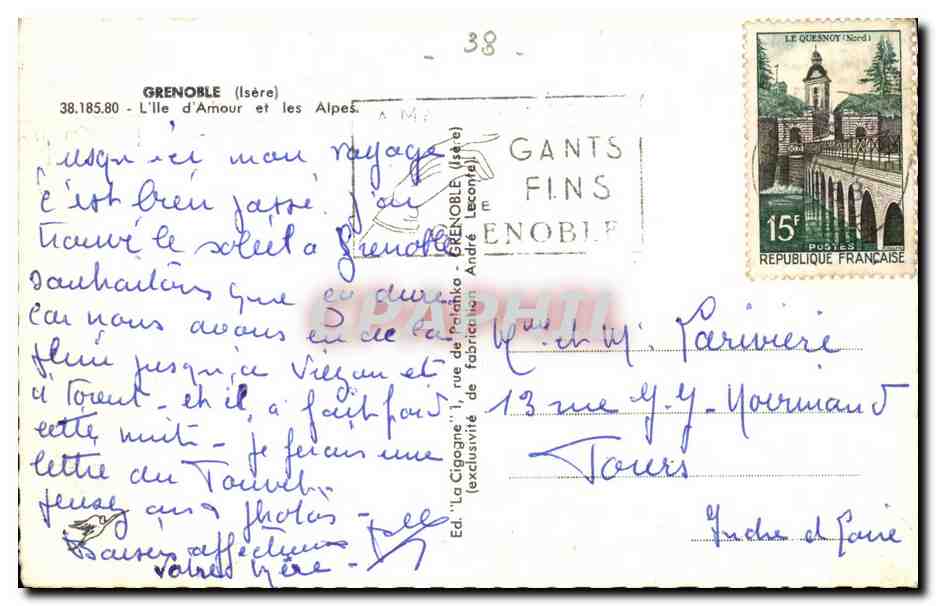 - 38 -
GRENOBLE (Isère)
38.185.80 - L'Ile d'Amour et les Alpes.
LE QUESNOY (Nord)
15F
POSTES
REPUBLIQUE FRANÇAISE
GANTS
FINS
DE
GRENOBLE
Jusqu'ici mon voyage
c'est bien passé. J'ai
trouvé le soleil à Grenoble
souhaitons que ça dure
car nous avons eu de la
pluie jusqu'à et
à - et il a fait froid
cette nuit - je ferais une
lettre du
pensez aux photos -
Baisers affectueux
votre Mère -
Ed. "La Cigogne" 1, rue de Palanka - GRENOBLE (Isère)
(exclusivité de fabrication André Leconte)
CPAPHIL
Mme et M. Larivière
13 rue J. J. Noirmand
Tours
Indre et Loire